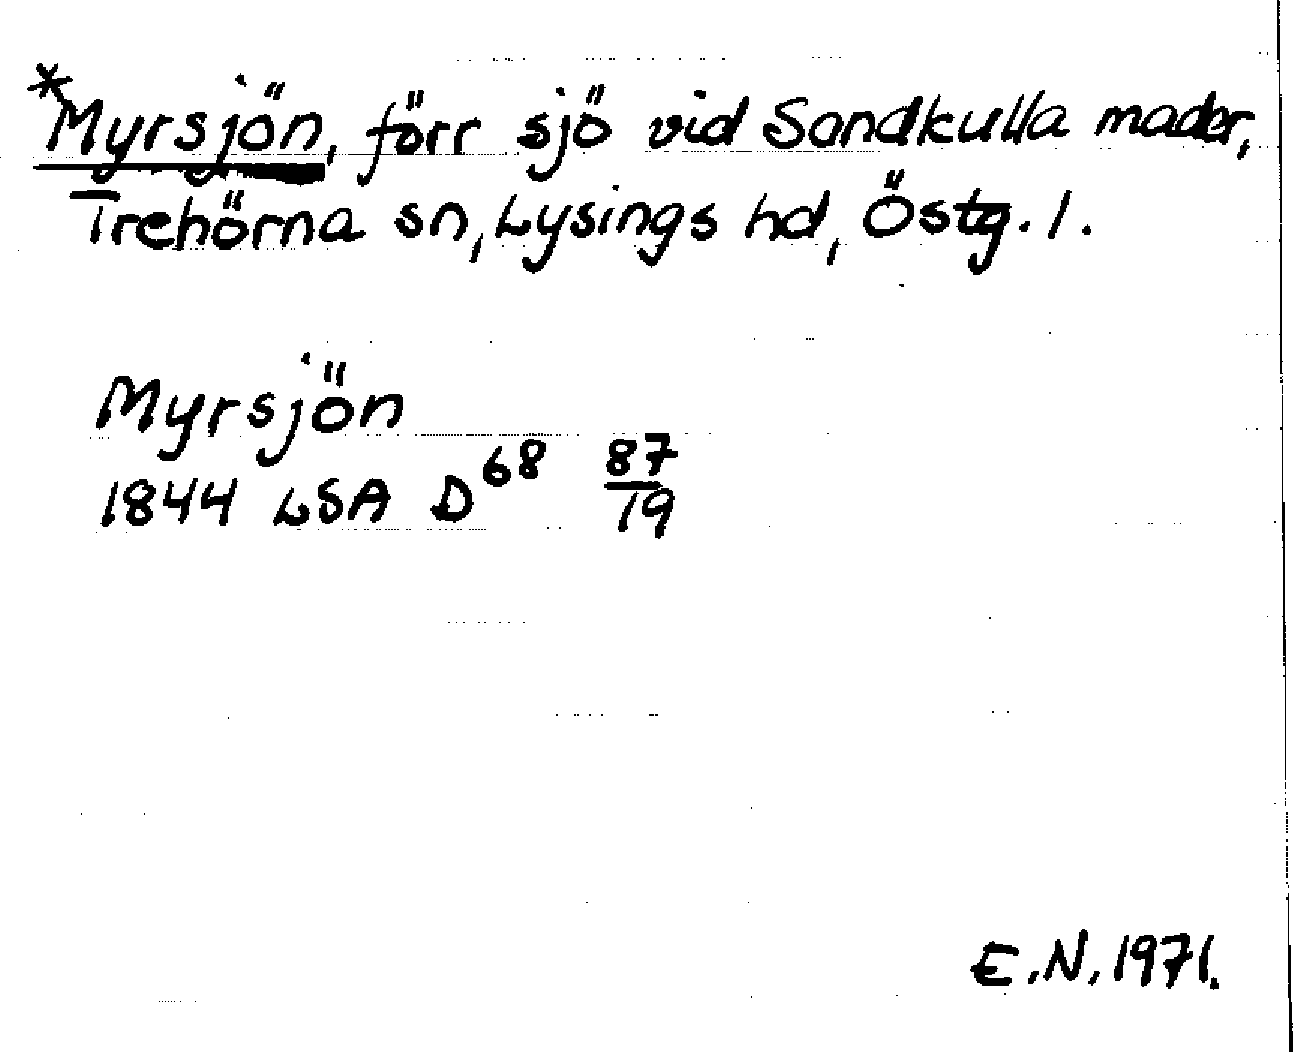 *Myrsjön, förr sjö vid Sandkulla mader,
Trehörna sn, Lysings hd, Östg. l.
Myrsjön
1844 LSA D68 87/19
E.N. 1971.